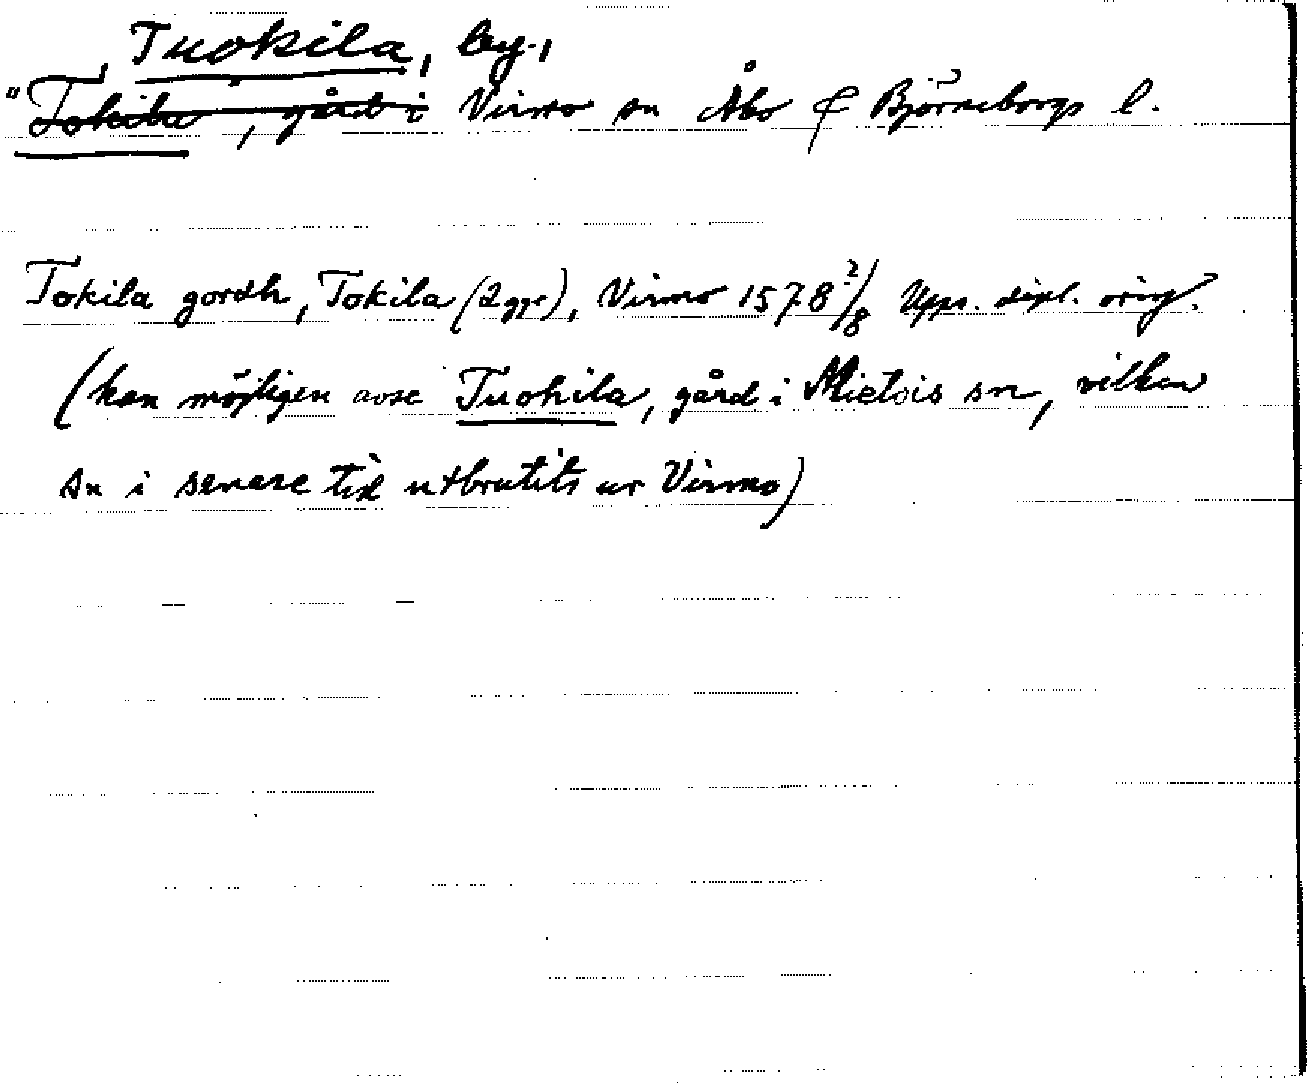 Tuokila, by,
"Tokila", gård i Virmo sn Åbo & Björneborgs l.
Tokila gordh, Tokila (2 ggr), Virmo 1578 2/8 Upps. dipl. orig.
(kan möjligen avse Tuohila, gård i Mietois sn, vilken
sn i senare tid utbrutits ur Virmo)